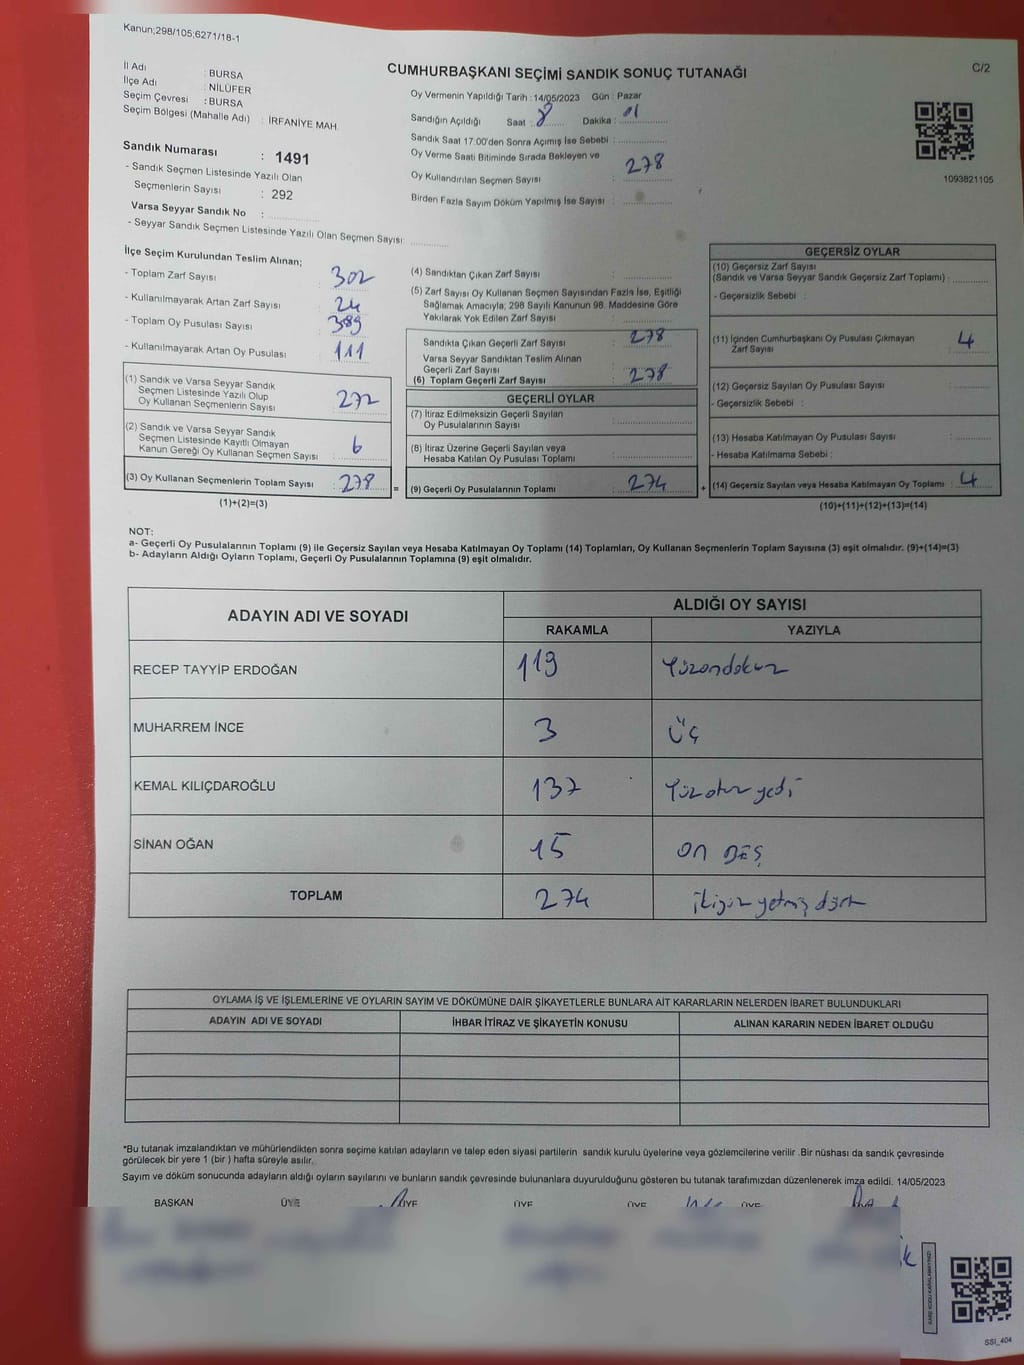 Kanun;298/105;6271/18-1
C/2
CUMHURBAŞKANI SEÇİMİ SANDIK SONUÇ TUTANAĞI
İl Adı : BURSA
İlçe Adı : NİLÜFER
Seçim Çevresi : BURSA
Seçim Bölgesi (Mahalle Adı) : İRFANİYE MAH.
Sandık Numarası : 1491
- Sandık Seçmen Listesinde Yazılı Olan
Seçmenlerin Sayısı : 292
Varsa Seyyar Sandık No :
- Seyyar Sandık Seçmen Listesinde Yazılı Olan Seçmen Sayısı:
Oy Vermenin Yapıldığı Tarih : 14/05/2023 Gün : Pazar
Sandığın Açıldığı Saat : 8 Dakika : 01
Sandık Saat 17:00'den Sonra Açımış İse Sebebi :
Oy Verme Saati Bitiminde Sırada Bekleyen ve
Oy Kullandırılan Seçmen Sayısı : 278
Birden Fazla Sayım Döküm Yapılmış İse Sayısı :
1093821105
İlçe Seçim Kurulundan Teslim Alınan;
- Toplam Zarf Sayısı : 302
- Kullanılmayarak Artan Zarf Sayısı : 24
- Toplam Oy Pusulası Sayısı : 389
- Kullanılmayarak Artan Oy Pusulası : 111
(1) Sandık ve Varsa Seyyar Sandık
Seçmen Listesinde Yazılı Olup
Oy Kullanan Seçmenlerin Sayısı : 272
(2) Sandık ve Varsa Seyyar Sandık
Seçmen Listesinde Kayıtlı Olmayan
Kanun Gereği Oy Kullanan Seçmen Sayısı : 6
(3) Oy Kullanan Seçmenlerin Toplam Sayısı : 278
(1)+(2)=(3)
(4) Sandıktan Çıkan Zarf Sayısı :
(5) Zarf Sayısı Oy Kullanan Seçmen Sayısından Fazla İse, Eşitliği
Sağlamak Amacıyla; 298 Sayılı Kanunun 98. Maddesine Göre
Yakılarak Yok Edilen Zarf Sayısı :
Sandıkta Çıkan Geçerli Zarf Sayısı : 278
Varsa Seyyar Sandıktan Teslim Alınan
Geçerli Zarf Sayısı :
(6) Toplam Geçerli Zarf Sayısı : 278
GEÇERLİ OYLAR
(7) İtiraz Edilmeksizin Geçerli Sayılan
Oy Pusulalarının Sayısı :
(8) İtiraz Üzerine Geçerli Sayılan veya
Hesaba Katılan Oy Pusulası Toplamı :
= (9) Geçerli Oy Pusulalarının Toplamı : 274
GEÇERSİZ OYLAR
(10) Geçersiz Zarf Sayısı
(Sandık ve Varsa Seyyar Sandık Geçersiz Zarf Toplamı) :
- Geçersizlik Sebebi :
(11) İçinden Cumhurbaşkanı Oy Pusulası Çıkmayan
Zarf Sayısı : 4
(12) Geçersiz Sayılan Oy Pusulası Sayısı :
- Geçersizlik Sebebi :
(13) Hesaba Katılmayan Oy Pusulası Sayısı :
- Hesaba Katılmama Sebebi :
+ (14) Geçersiz Sayılan veya Hesaba Katılmayan Oy Toplamı : 4
(10)+(11)+(12)+(13)=(14)
NOT:
a- Geçerli Oy Pusulalarının Toplamı (9) ile Geçersiz Sayılan veya Hesaba Katılmayan Oy Toplamı (14) Toplamları, Oy Kullanan Seçmenlerin Toplam Sayısına (3) eşit olmalıdır. (9)+(14)=(3)
b- Adayların Aldığı Oyların Toplamı, Geçerli Oy Pusulalarının Toplamına (9) eşit olmalıdır.
ADAYIN ADI VE SOYADI ALDIĞI OY SAYISI
RAKAMLA YAZIYLA
RECEP TAYYİP ERDOĞAN 119 Yüzondokuz
MUHARREM İNCE 3 Üç
KEMAL KILIÇDAROĞLU 137 Yüz otuz yedi
SİNAN OĞAN 15 on BEŞ
TOPLAM 274 ikiyüz yetmiş dört
OYLAMA İŞ VE İŞLEMLERİNE VE OYLARIN SAYIM VE DÖKÜMÜNE DAİR ŞİKAYETLERLE BUNLARA AİT KARARLARIN NELERDEN İBARET BULUNDUKLARI
ADAYIN ADI VE SOYADI İHBAR İTİRAZ VE ŞİKAYETİN KONUSU ALINAN KARARIN NEDEN İBARET OLDUĞU
*Bu tutanak imzalandıktan ve mühürlendikten sonra seçime katılan adayların ve talep eden siyasi partilerin sandık kurulu üyelerine veya gözlemcilerine verilir .Bir nüshası da sandık çevresinde
görülecek bir yere 1 (bir ) hafta süreyle asılır.
Sayım ve döküm sonucunda adayların aldığı oyların sayılarını ve bunların sandık çevresinde bulunanlara duyurulduğunu gösteren bu tutanak tarafımızdan düzenlenerek imza edildi. 14/05/2023
BAŞKAN ÜYE ÜYE ÜYE ÜYE ÜYE
SSI_404